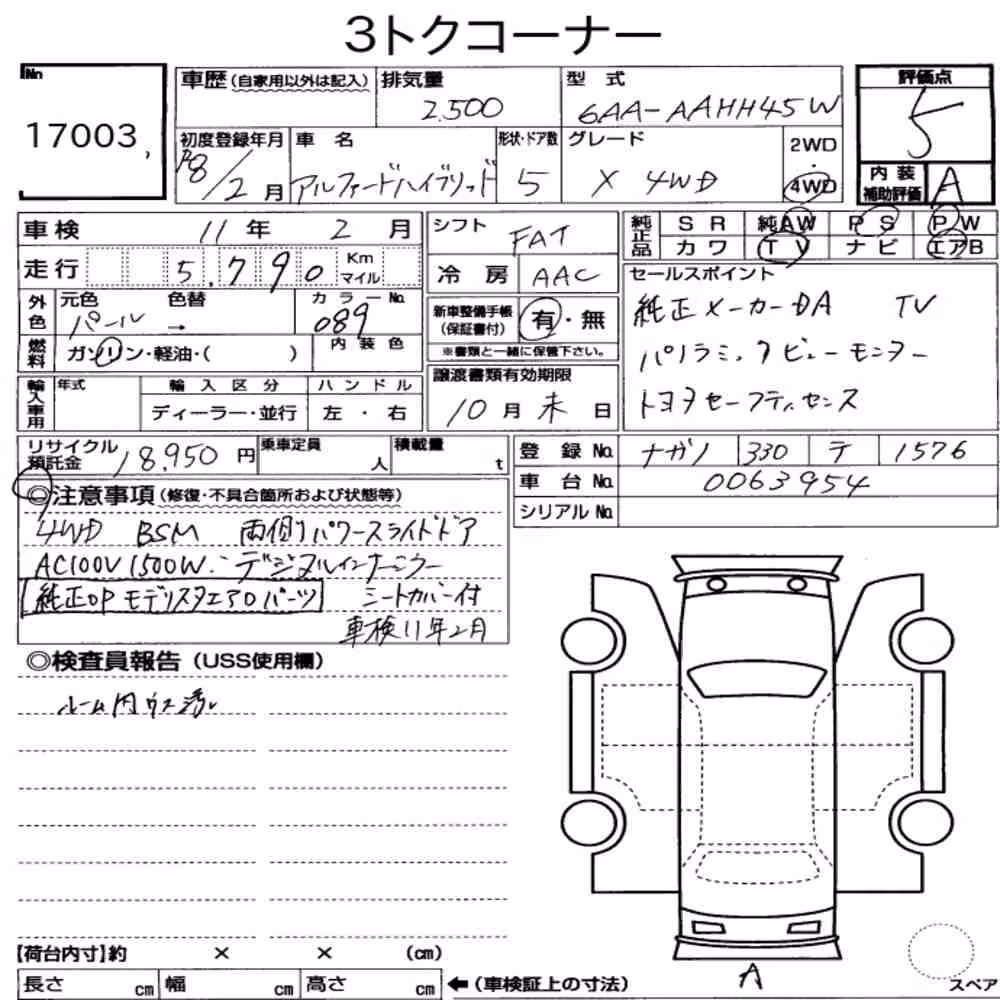 3トクコーナー
No 17003
車歴 (自家用以外は記入) 排気量 2,500 型式 6AA-AAHH45W
初度登録年月 R8/2月 車名 アルファードハイブリッド 形状・ドア数 5 グレード X 4WD 2WD・4WD
評価点 5
内装補助評価 A
車検 11年 2月
走行 5,790 Km マイル
外色 元色 パール 色替 → カラーNo. 089
燃料 ガソリン・軽油・( ) 内装色
輸入車用 年式 輸入区分 ディーラー・並行 ハンドル 左・右
シフト FAT
冷房 AAC
新車整備手帳(保証書付) 有・無
※書類と一緒に保管下さい。
譲渡書類有効期限
10月末日
純正品 SR 純AW PS PW
カワ TV ナビ エアB
セールスポイント
純正メーカーDA TV
パノラミックビューモニター
トヨタセーフティセンス
リサイクル預託金 18,950円 乗車定員 人 積載量 t
登録No. ナガノ 330 テ 1576
車台No. 0063954
シリアルNo.
◎注意事項 (修復・不具合箇所および状態等)
4WD BSM 両側パワースライドドア
AC100V 1500W デジタルインナーミラー
純正OP モデリスタエアロパーツ シートカバー付
車検11年2月
◎検査員報告 (USS使用欄)
ルーム内ウス汚レ
【荷台内寸】約 × × (cm)
長さ cm 幅 cm 高さ cm ←(車検証上の寸法)
A
スペア